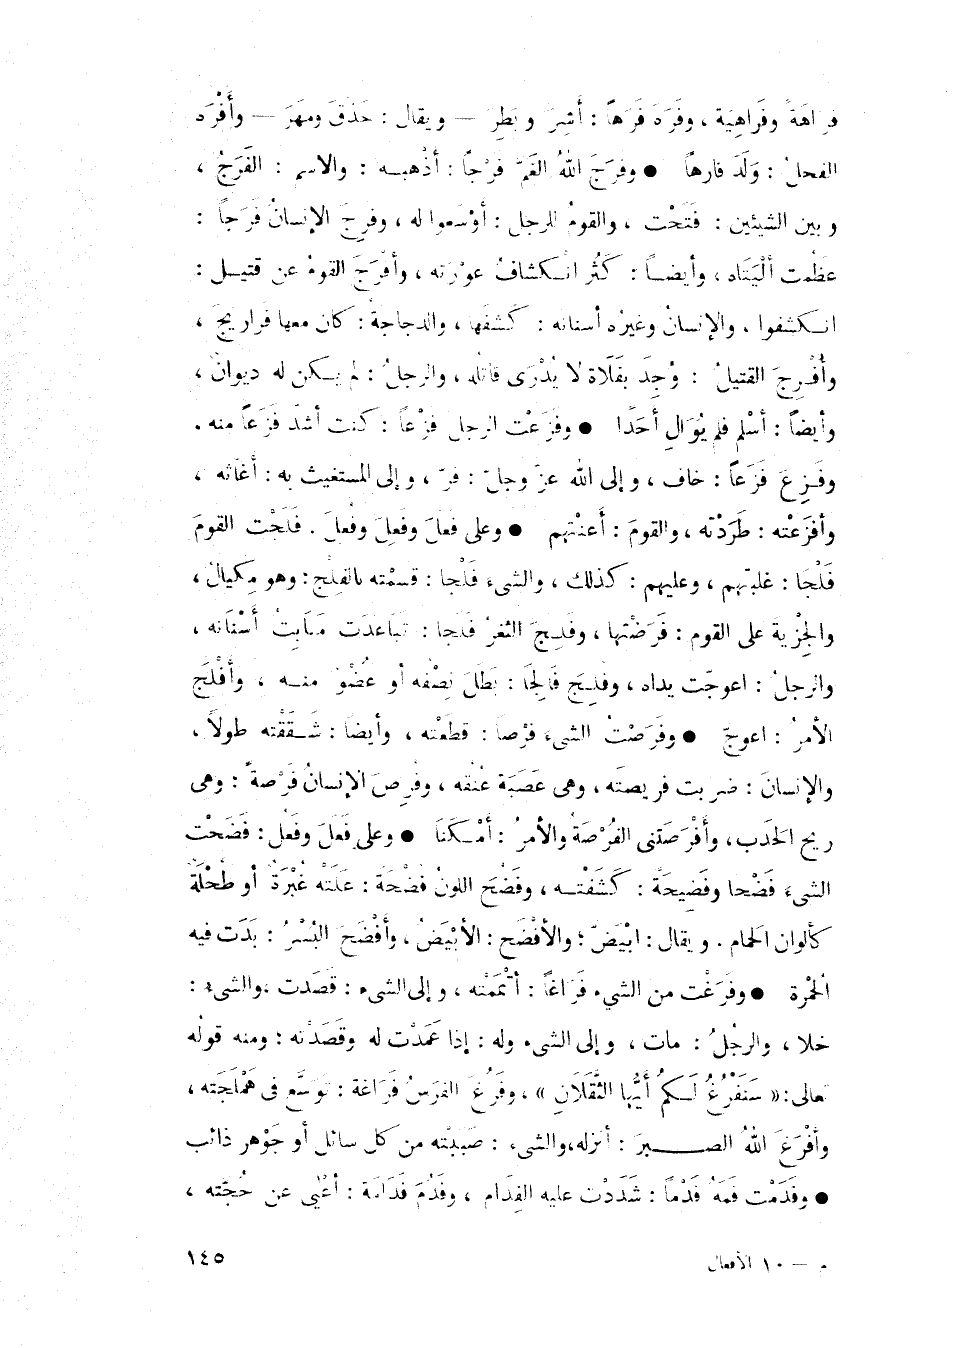 فراهَةً وفَراهِيَة ، وفَرَهَ فَرَهاً : أَشِرَ وبَطِرَ — ويقال : حَذَقَ ومهَرَ — وأَفْرَه
الفحلُ : وَلَدَ فارهاً ● وفرَجَ اللهُ الغَمّ فرْجاً : أذْهبه : والاسم : الفَرَجُ ،
وبين الشيئين : فتَحْت ، والقومُ للرجل : أوْسَعوا له ، وفرِجَ الإنسانُ فَرَجاً :
عظُمت ألْيَتَاه ، وأيضاً : كَثُر انكشافُ عوْرَته ، وأفْرَجَ القومُ عن قتيل :
انكشفوا ، والإنسانُ وغيرُه أسنانه : كَشفَها ، والدجاجة : كان معها فراريجُ ،
وأُفْرِجَ القتيلُ : وُجِدَ بفَلَاة لا يُدْرَى قاتله ، والرجلُ : لم يكن له ديوانٌ ،
وأيضاً : أسْلم فلم يُوَالِ أحَدًا ● وفزَعْت الرجل فزْعاً : كنت أشدّ فَزَعاً منه .
وفَزِعَ فَزَعاً : خاف ، وإلى الله عزّ وجلّ : فرّ ، وإلى المستغيث به : أغاثه ،
وأفزَعْته : طَرَدْته ، والقومَ : أعنْتهم ● وعلى فعَلَ وفَعِلَ وفُعِلَ . فَلَجْت القومَ
فَلْجًا : غلبتهم ، وعليهم : كذلك ، والشىءَ فَلْجا : قسمْته بالفلْج : وهو مكيالٌ ،
والجِزْية على القوم : فَرَضْتها ، وفَلِجَ الثغرُ فَلَجا : تباعدَت منابِتُ أسْنانه ،
والرجلُ : اعوجّت يداه ، وفُلِج فَالِجًا : بَطَلَ نِصْفه أو عُضْوٌ منه ، وأفْلَجَ
الأمرُ : اعوجّ ● وفَرَصْتُ الشىءَ فرْصاً : قطَعْته ، وأيضاً : شَقَقْته طولاً ،
والإنسانَ : ضربت فريصتَه ، وهى عَصَبَة عُنقه ، وفُرِصَ الإنسانُ فَرْصةً : وهى
ريح الحَدَب ، وأَفْرَصَتنى الفُرْصَةُ والأمرُ : أمْكَنَا ● وعلى فَعَلَ وفَعُل : فَضَحْت
الشىءَ فَضْحا وفَضِيحَة : كَشَفْته ، وفَضُحَ اللونُ فُضْحَةً : عَلَتْه غُبْرَةٌ أو طُحْلَةٌ
كألوان الحمام . ويقال : ابْيَضّ ؛ والأفْضَح : الأبْيَضُ ، وأَفْضَحَ البُسْرُ : بَدَت فيه
الحُمْرة ● وفرَغْت من الشيء فَرَاغاً : أتْمَمْته ، وإلى الشىء : قَصَدت ، والشىءُ :
خلا ، والرجُلُ : مات ، وإلى الشىء وله : إذا عَمَدْت له وقَصَدْته : ومنه قولُه
تعالى : « سَنَفْرُغُ لَكمُ أَيُّها الثَّقَلَانِ » ، وفَرُغَ الفرَسُ فَرَاغة : توسَّع فى هَمْلَجَته ،
وأفْرَغَ اللهُ الصبرَ : أنزله ، والشىءَ : صَبَبْته من كل سائل أو جَوْهر ذائب
● وفَدَمْت فَمَهُ فَدْماً : شَدَدْت عليه الفِدَام ، وفَدُمَ فَدَامَة : أعْيَى عن حُجّته ،
م — ١٠ الأفعال
١٤٥